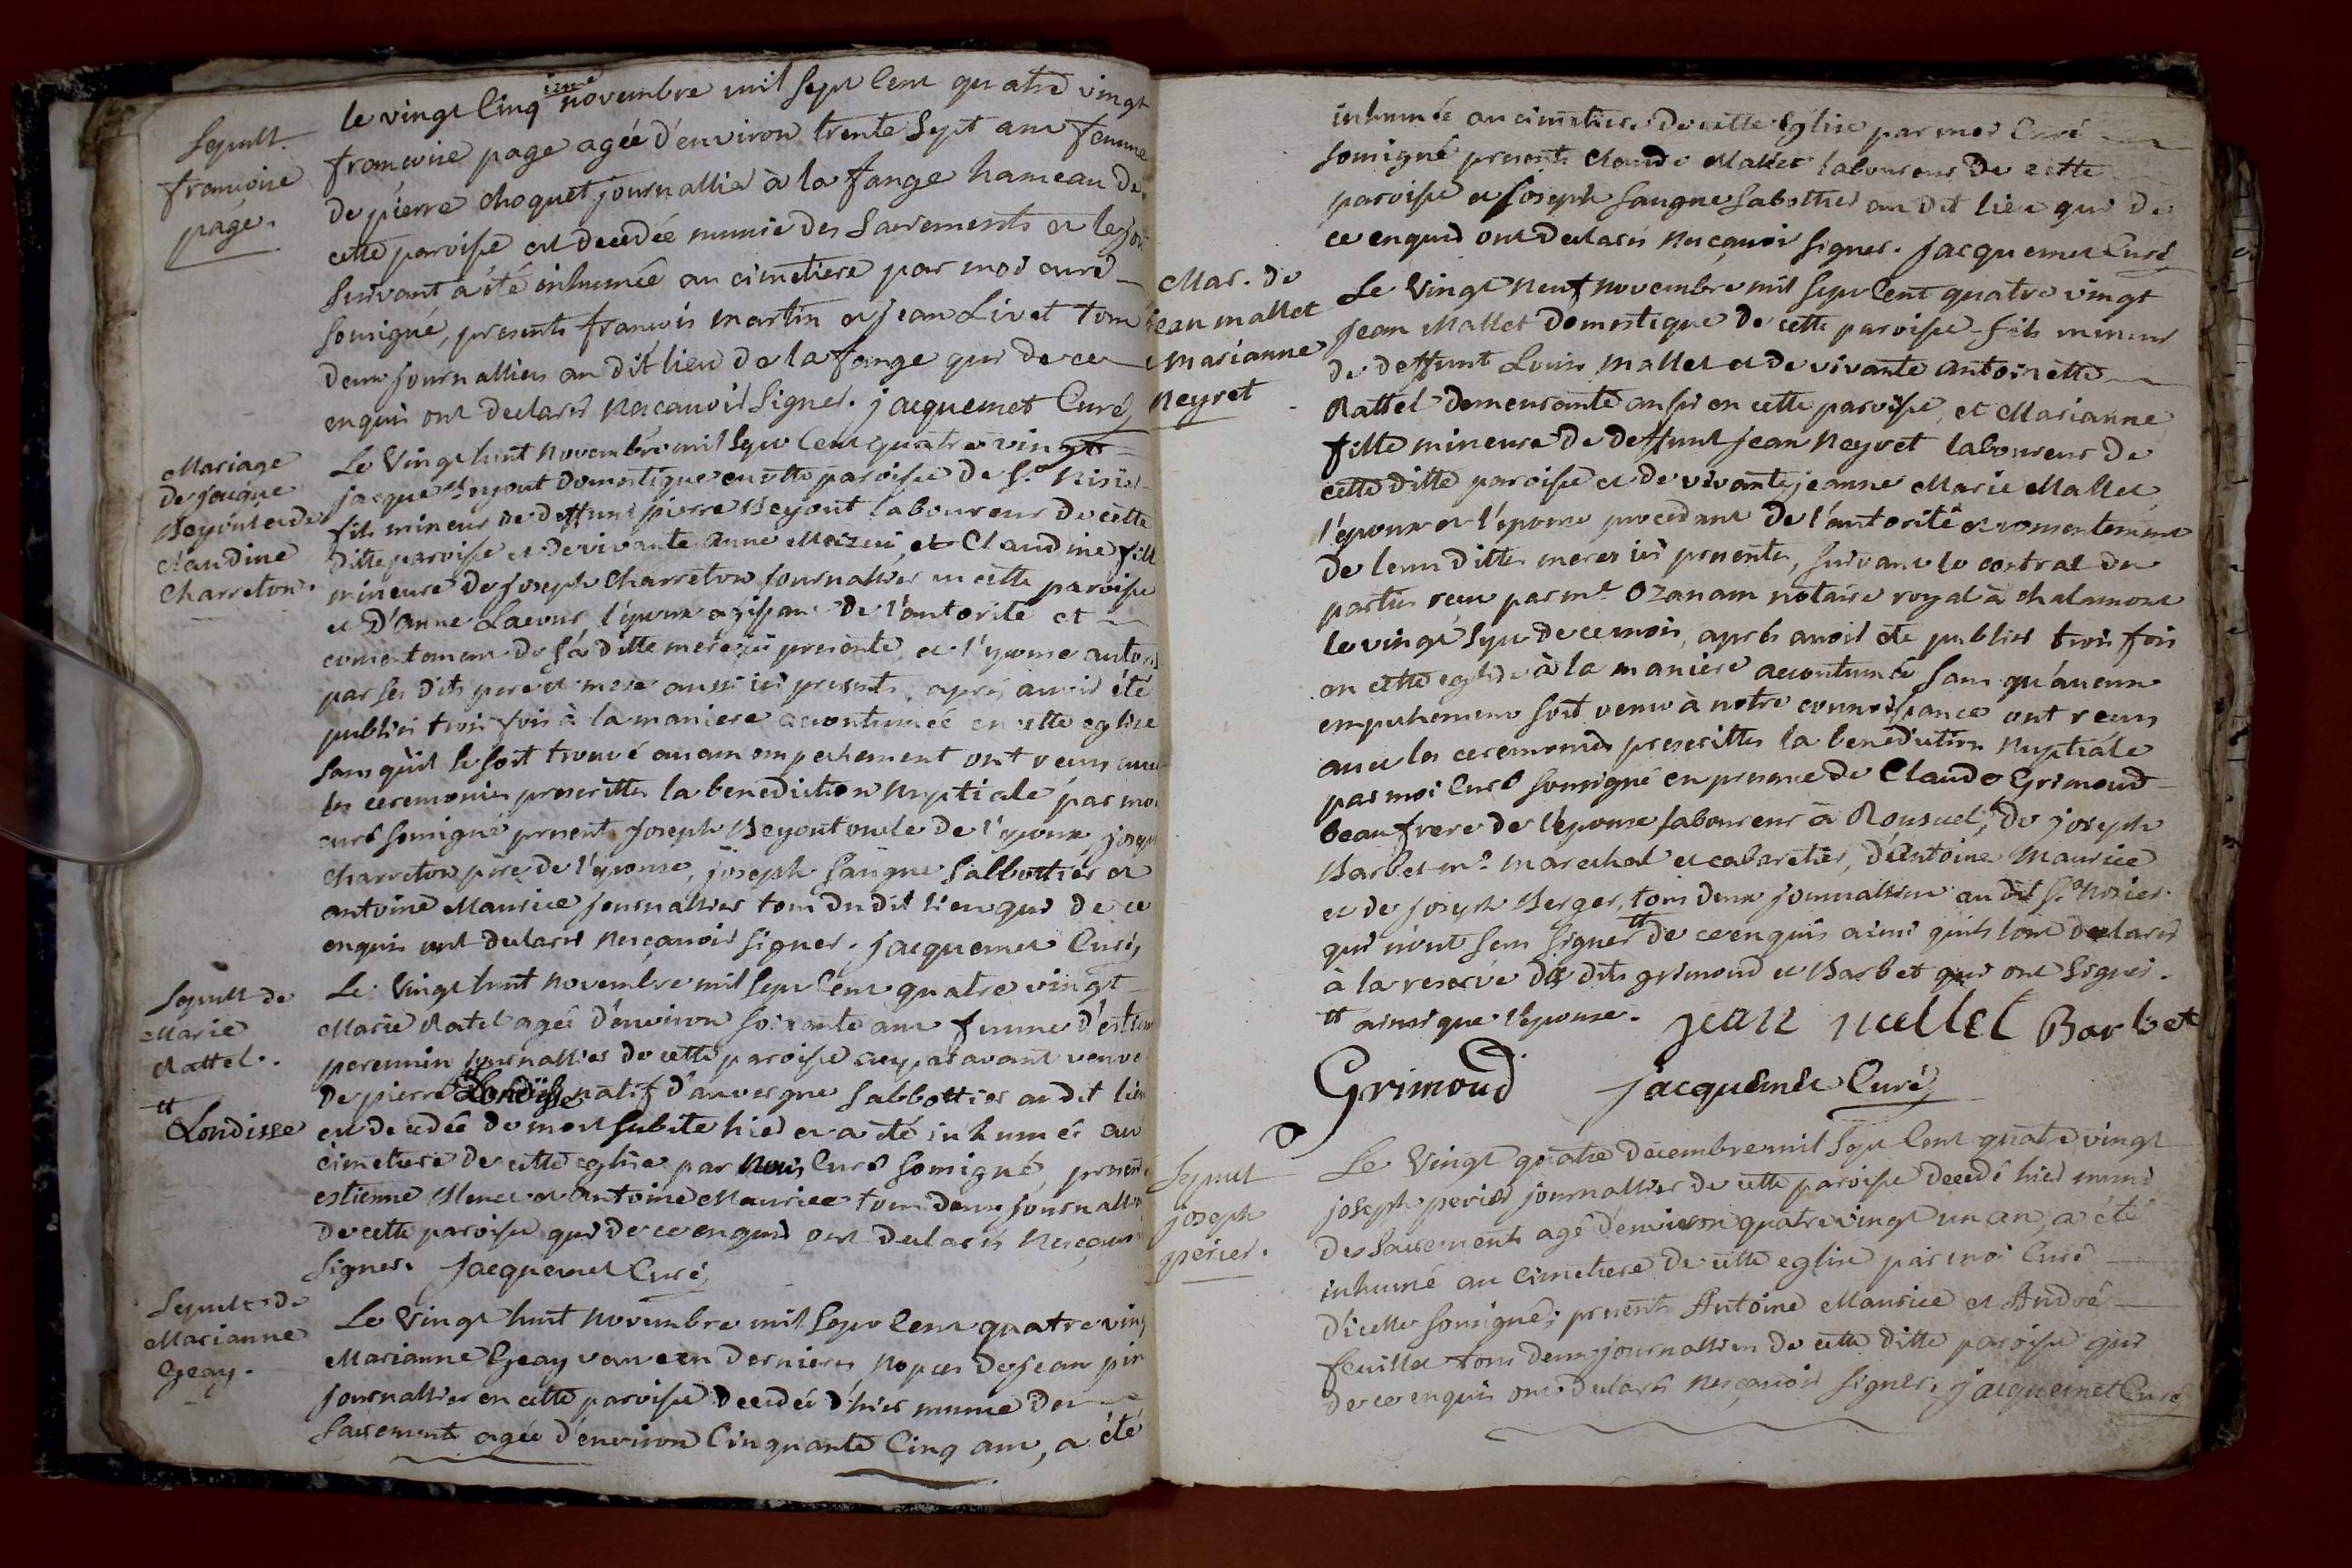 Sepult.
francoise
page.
le vingt Cinq ieme novembre mil Sept Cent quatre vingt
francoise page agée d'environ trente Sept ans femme
de pierre choquet journallier à la fange hameau de
cette paroisse est decedée munie des Sacrements et le jour
Suivant a été inhumée au cimetiere par moi curé
Sousigné, presents francois martin et jean Livet tous
deux journalliers au dit lieu de la fange qui de ce
enquis ont declaré ne scavoir Signer. jacquemet Curé,
Mariage
de jacque
Beyout et de
claudine
Charreton.
Le Vingt huit Novembre mil Sept Cent quatre vingt
jacque Beyout Domestique en cette paroisse de St. Nizier
fils mineur de deffunt pierre Beyout laboureur de cette
ditte paroisse et de vivante anne Moizin, et Claudine fille
mineure de Joseph Charreton Journallier en cette paroisse
et D'anne Lacour, l'epoux agissant de l'autorité et
consentement de Sa ditte mere ici presente, et l'epouse
par Ses dits pere et mere aussi ici presents, après avoir été
publiés trois fois à la maniere accoutumée en cette eglise
Sans qu'il Se soit trouvé aucun empechement ont reçus avec
les ceremonies prescrittes la benediction Nuptiale par moi
curé Sousigné present Joseph Beyout oncle de l'epoux, joseph
charreton père de l'epouse, joseph Saugne Sabbottier et
antoine Maurice journallier tous du dit lieu qui de ce
enquis ont declaré ne scavoir Signer. jacquemet Curé,
Sepult de
Marie
Rattel.
tt
Londisse
Le Vingt huit Novembre mil Sept Cent quatre vingt
Marie Ratel agée d'environ Soixante ans femme d'estienne
perennin journallier de cette paroisse auparavant veuve
de pierre Londisse natif d'auvergne Sabbottier au dit lieu
est decedée de mort Subite hier et a été inhumée au
cimetiere de cette eglise par Nous Curé Sousigné, presents
estienne et antoine Maurice tous deux journalliers
de cette paroisse qui de ce enquis ont declaré ne scavoir
Signer. Jacquemet Curé,
Sepult de
Marianne
Geay.
Le Vingt huit Novembre mil Sept Cent quatre vingt
Marianne Geay veuve en dernieres Nopces de jean
journallier en cette paroisse decedée d'hier munie des
Sacrements agée d'environ Cinquante Cinq ans, a été
inhumée au cimetiere de cette Eglise par moi Curé
Sousigné presents Claude Mallet laboureur de cette
paroisse et Joseph Saugne Sabottier au dit lieu qui de
ce enquis ont declaré ne scavoir Signer. jacquemet Curé
Mar. de
jean mallet
Marianne
Neyret
Le Vingt Neuf Novembre mil Sept Cent quatre vingt
jean Mallet domestique de cette paroisse fils mineur
de deffunt Louis Mallet et de vivante antoinette
Rattel demeurante aussi en cette paroisse, et Marianne
fille mineure de deffunt jean Neyret laboureur de
cette ditte paroisse et de vivante jeanne Marie Mallet
l'epoux et l'epouse procedant de l'autorité et consentement
de leurs dittes meres ici presentes, Suivant le contrat des
parties reçu par me Ozanam notaire royal à chalamont
le vingt Sept de ce mois, après avoir été publiés trois fois
en cette eglise à la maniere accoutumée Sans qu'aucun
empechement Soit venu à notre connoissance ont reçus
avec les ceremonies prescrittes la benediction Nuptiale
par moi Curé Sousigné en presence de Claude Grimoud
beau frere de l'epouse laboureur à Ronsuel, de joseph
Barbet me. marechal et cabaretier, d'Antoine Maurice
et de joseph Berger, tous deux journalliers au dit St. Nizier
qui n'ont Seu Signer tt de ce enquis ainsi qu'ils l'ont declaré
à la reserve des dits grimoud et Barbet qui ont Signés.
tt ainsi que l'epouse. jean mallet Barbet
Grimoud jacquemet Curé,
Sepult
joseph
perier.
Le Vingt quatre decembre mil Sept Cent quatre vingt
joseph perier journallier de cette paroisse decedé hier muni
des Sacrements agé d'environ quatre vingt un an, a été
inhumé au Cimetiere de cette eglise par moi Curé
d'icelle Sousigné; presents Antoine Maurice et André
feuillet tous deux journalliers de cette ditte paroisse qui
de ce enquis ont declaré ne scavoir Signer. jacquemet Curé